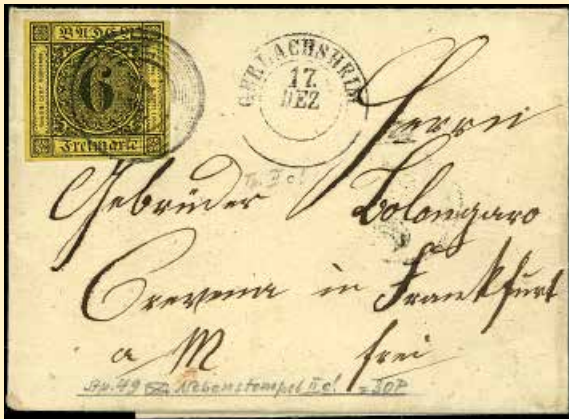 BADEN
6
Freimarke
GERLACHSHEIM
17.
DEZ
Herrn
Gebrüder Bolongaro
Crevenna in Frankfurt
a M frei
Nebenstempel II c!